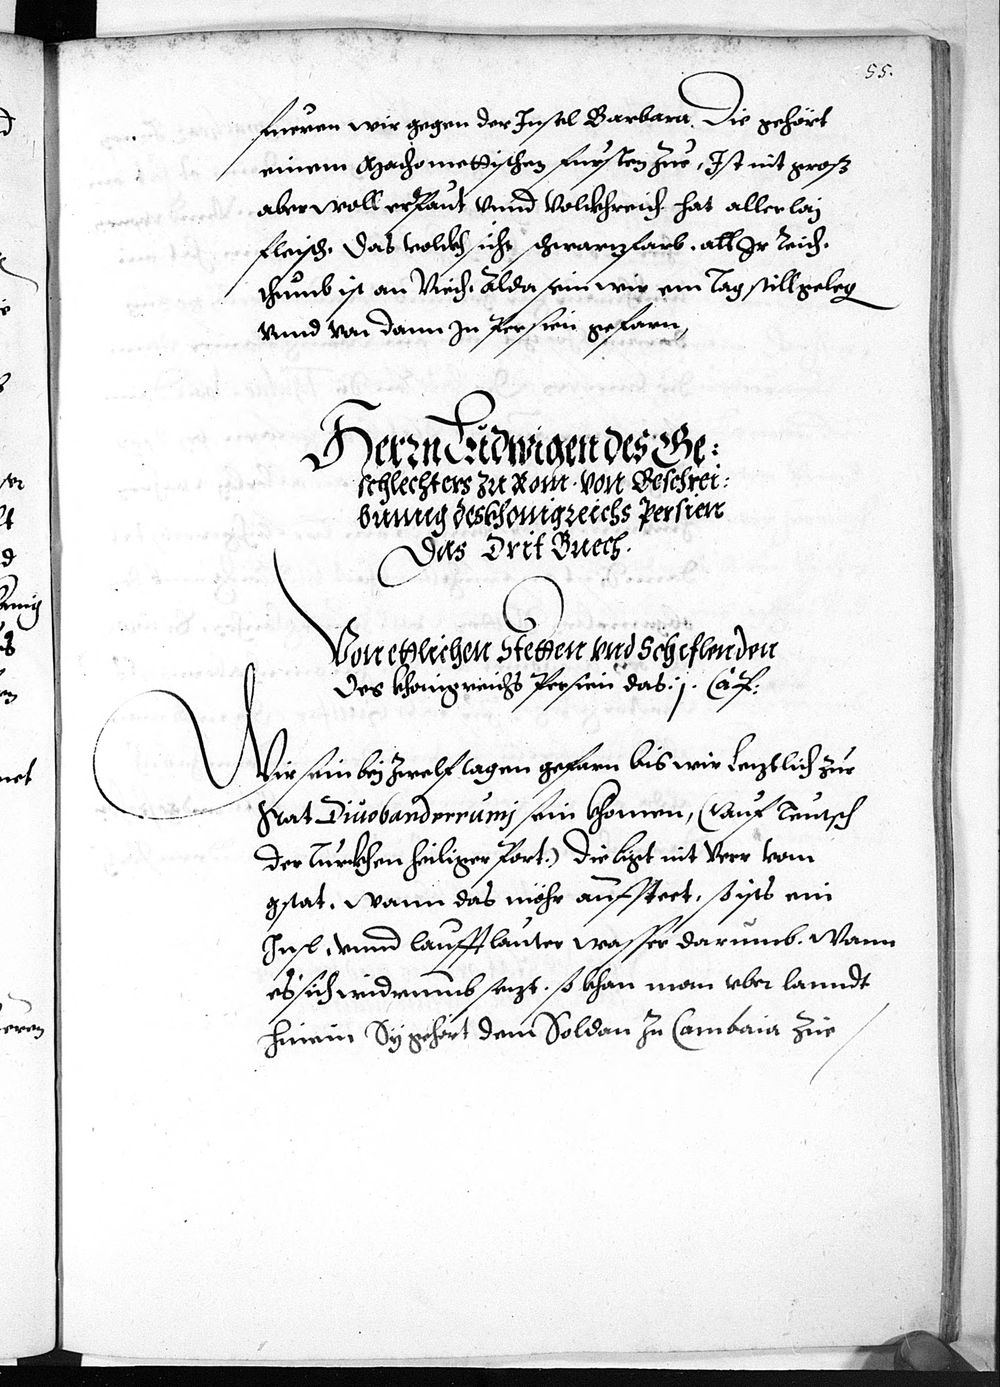 55.
fueren wir gegen der Insel Barbara. Die gehört
einem Machomettischen fursten zue, Ist nit groß
aber woll erpaut vnnd volckhreich hat allerlaj
fleisch. Das volckh ist schwartzfarb. all Ir Reich-
thumb ist an Viech. Alda sein wir ein Tag still geleg
vnnd von dann In Persien gefarn,
Herrn Ludwigen des Ge:
schlechters zu Rom. von Beschrei:
bunng des khonigreichs Persien
Das Drit Buech.
Von ettlichen Stetten vnd Schiflenden
des khonigreichs Persien das .j. Cap:
Wir sein bej zwelf tagen gefarn bis wir letztlich zue
Stat Diuobanderrumj sein khomen, (auf Teutsch
der Turckhen heiliger Port.) die ligt nit verr vom
gstat. Wann das möhr aufsteet, so ists ein
Insl, vnnd laufft lauter wasser darumb. Wann
es sich widrumb setzt. so khan man vber lanndt
hinein Sy gehört dem Soldan zu Cambaia zue